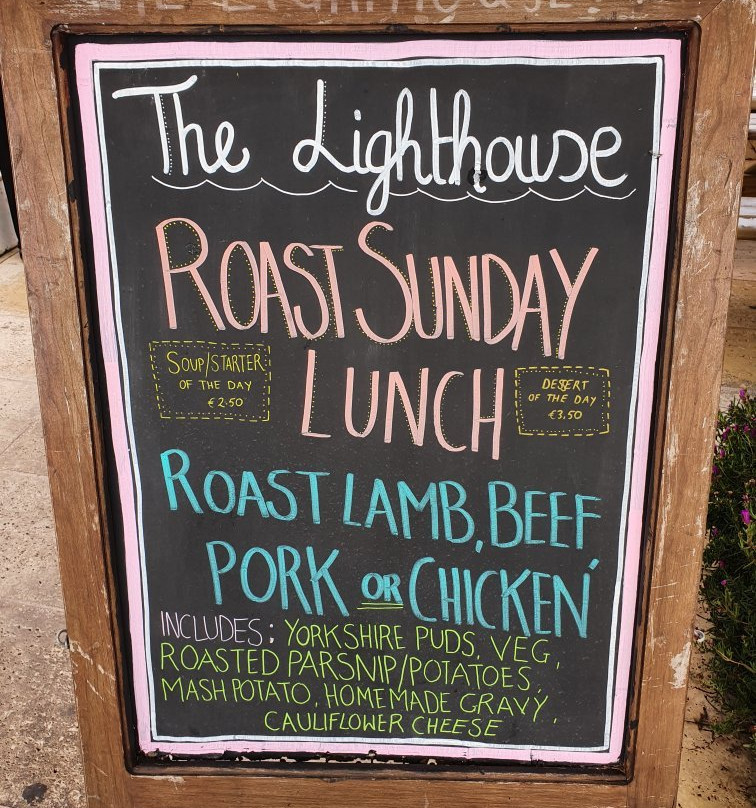 THE LIGHTHOUSE!
The Lighthouse
ROAST SUNDAY
LUNCH
SOUP/STARTER
OF THE DAY
€2.50
DESSERT
OF THE DAY
€3,50
ROAST LAMB, BEEF,
PORK OR CHICKEN
INCLUDES: YORKSHIRE PUDS, VEG,
ROASTED PARSNIP/POTATOES,
MASH POTATO, HOMEMADE GRAVY,
CAULIFLOWER CHEESE